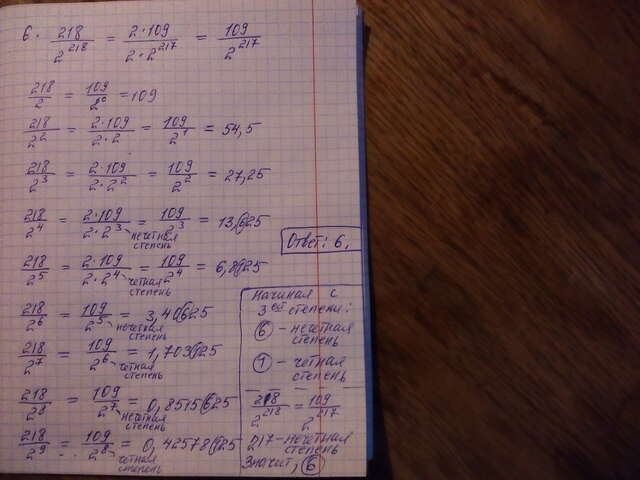 6. 218/2^218 = 2·109/2·2^217 = 109/2^217
218/2 = 109/2^0 = 109
218/2^2 = 2·109/2·2 = 109/2^1 = 54,5
218/2^3 = 2·109/2·2^2 = 109/2^2 = 27,25
218/2^4 = 2·109/2·2^3 = 109/2^3 = 13,625
нечетная
степень
Ответ: 6.
218/2^5 = 2·109/2·2^4 = 109/2^4 = 6,8125
четная
степень
218/2^6 = 109/2^5 = 3,40625
нечетная
степень
218/2^7 = 109/2^6 = 1,703125
четная
степень
218/2^8 = 109/2^7 = 0,8515625
нечетная
степень
218/2^9 = 109/2^8 = 0,42578125
четная
степень
Начиная с
3ей степени:
6 - нечетная
степень
1 - четная
степень
218/2^218 = 109/2^217
217 - нечетная
степень
Значит, 6